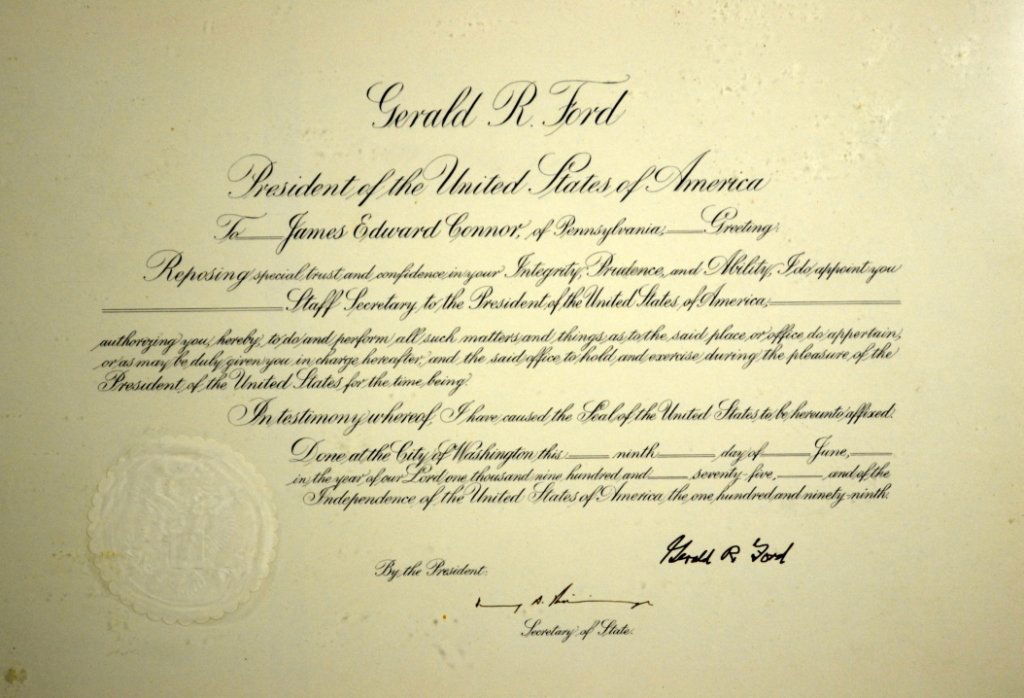 Gerald R. Ford
President of the United States of America
To James Edward Connor, of Pennsylvania, Greeting:
Reposing special trust and confidence in your Integrity, Prudence, and Ability, I do appoint you
Staff Secretary to the President of the United States of America,
authorizing you, hereby, to do and perform all such matters and things as to the said place or office do appertain,
or as may be duly given you in charge hereafter, and the said office to hold and exercise during the pleasure of the
President of the United States for the time being.
In testimony whereof, I have caused the Seal of the United States to be hereunto affixed.
Done at the City of Washington this ninth day of June,
in the year of our Lord one thousand nine hundred and seventy-five, and of the
Independence of the United States of America the one hundred and ninety-ninth.
Gerald R. Ford
By the President:
Secretary of State.